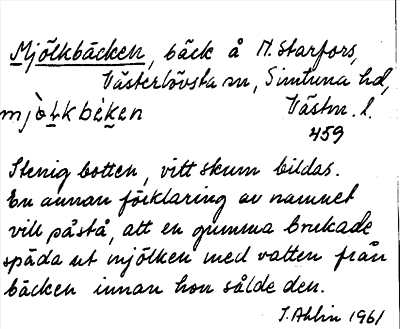 Mjölkbäcken, bäck å N. Starfors,
Västerlövsta sn, Simtuna hd,
mjòlkbèken Västm. l.
459
Stenig botten, vitt skum bildas.
En annan förklaring av namnet
vill påstå, att en gumma brukade
späda ut mjölken med vatten från
bäcken innan hon sålde den.
J. Ahlin 1961